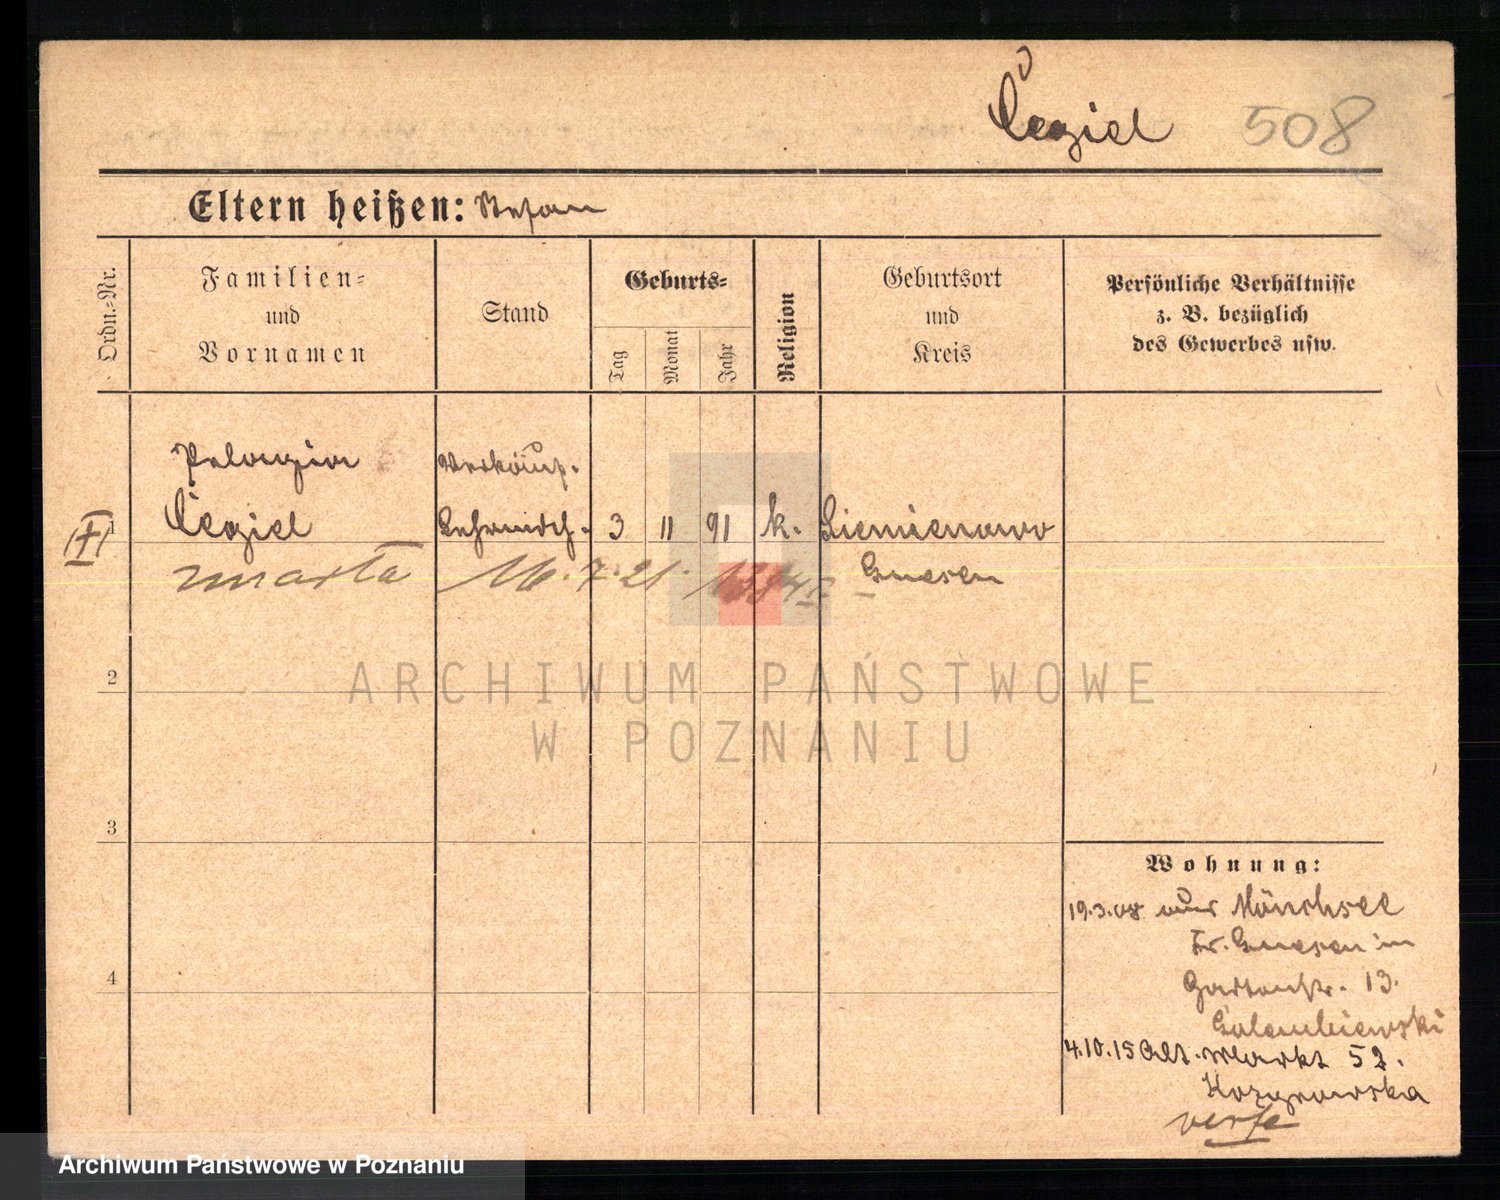 Cegiel 508
Eltern heißen: Stefan
Ordn.-Nr.
Familien-
und
Vornamen
Stand
Geburts-
Tag
Monat
Jahr
Religion
Geburtsort
und
Kreis
Persönliche Verhältnisse
z. B. bezüglich
des Gewerbes usw.
Pelagia Verkäuf.
1 Cegiel Lehrmdch. 3 11 91 k. Siemienowo
zmarła 16.7.21. Gnesen
2
ARCHIWUM PAŃSTWOWE
W POZNANIU
3
Wohnung:
19.3.08 aus Mönchsee
Kr. Gnesen in
Gartenstr. 13.
4
Golembiewski
4.10.15 Alt. Markt 52.
verte
Archiwum Państwowe w Poznaniu